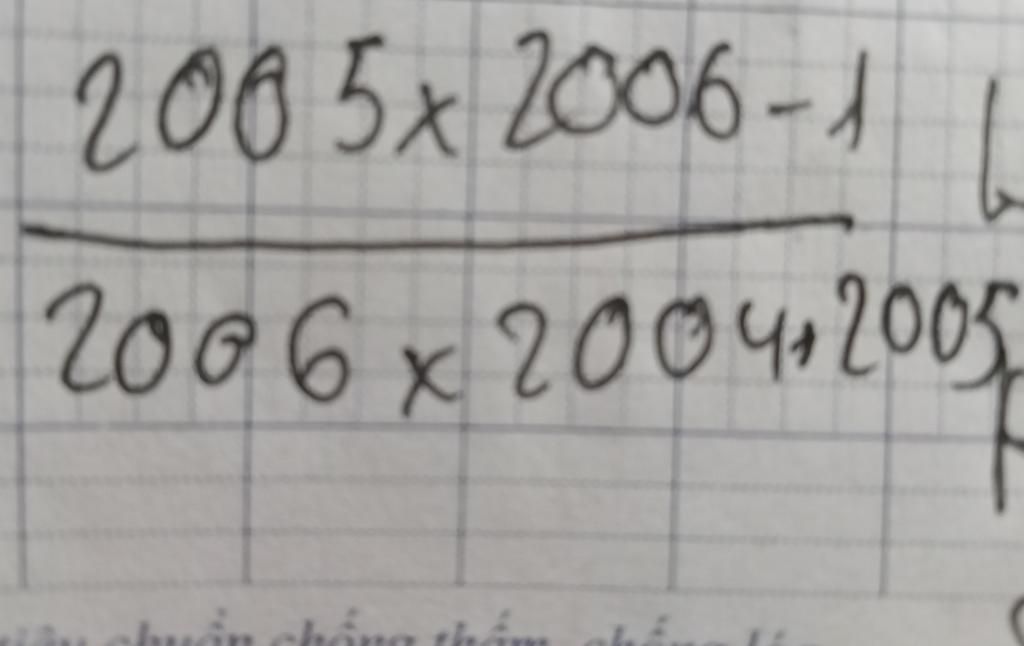 2005 x 2006 - 1
2006 x 2004 + 2005
chuẩn chống thấm, chống